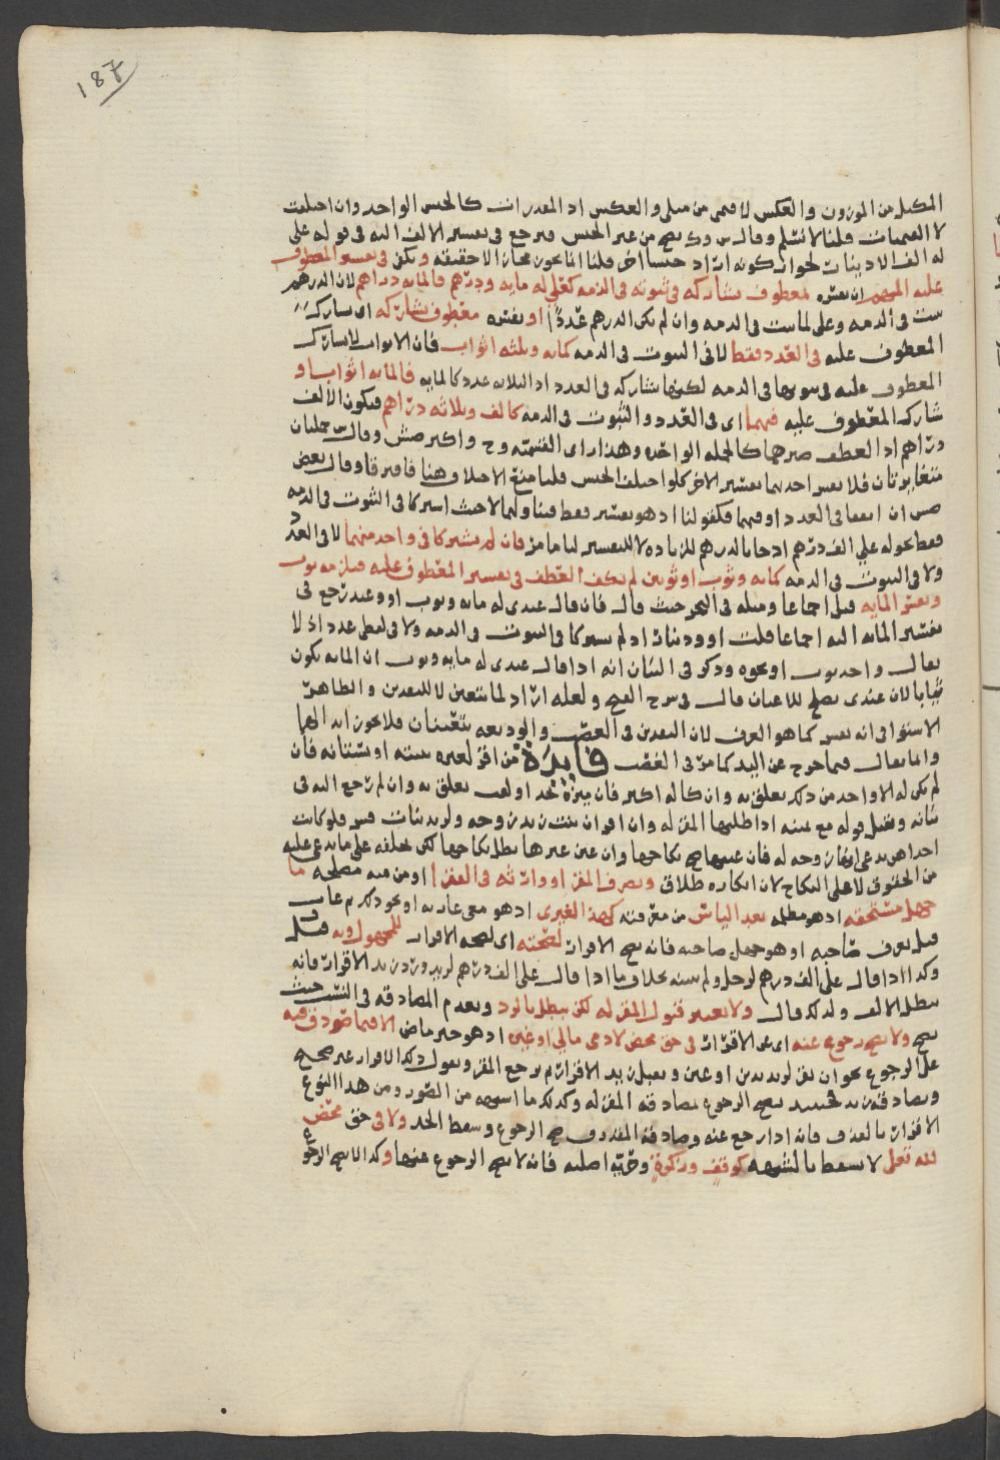 187
المكيل من الموزون والعكس لا قيمي من مثلي والعكس اذ المقدرات كالجنس الواحد وان اختلفت
لا القيميات قلنا لا نسلم وقال وك يصح من غير الجنس فيرجع في تفسير الالف اليه في قوله علي
له الف الا دينارا لجواز كونه اراد جنسا اخر قلنا انما يكون مجازا لا حقيقة ويكون في تفسير المعطوف
عليه المبهم ان يفسره لمعطوف يشاركه في ثبوته في الذمة كعلي له ماية ودرهم فالماية دراهم لان الدرهم
يثبت في الذمة وعلي لما يثبت في الذمة وان لم يكن الدرهم عددا او يفسره معطوف يشاركه اي يشارك
المعطوف عليه في العدد فقط لا في الثبوت في الذمة كماية وثلثة اثواب فان الاثواب لا تشارك
المعطوف عليه في ثبوتها في الذمة لكنها تشاركه في العدد اذ الثلاثة عدد كالماية فالماية اثواب او
شارك المعطوف عليه فيهما اي في العدد والثبوت في الذمة كالف وثلاثة دراهم فيكون الالف
دراهم اذ العطف صيرهما كالجملة الواحدة وهذا راي القسمية وح واكثر صش وقال ش جملتان
متغايرتان فلا يفسر احديهما بتفسير الاخر كلوا اختلف الجنس قلنا منع الاختلاف هنا فافترقا وقال بعض
صش ان اتفقا في العدد او فيهما فكقولنا اذ هو تفسير فقط فيتناولهما لا حيث اشتركا في الثبوت في الذمة
فقط نحو له علي الف درهم اذ جا بالدرهم للزيادة لا للتفسير لنا ما مر فان لم يشتركا في واحد منهما لا في العدد
ولا في الثبوت في الذمة كماية وثوب او ثوبين لم يكف العطف في تفسير المعطوف عليه فيلزمه ثوب
ويفسر الماية قيل اجماعا ومثله في البحر حيث قال فان قال عندي له ماية وثوب او وعبد رجع في
تفسير الماية اليه اجماعا قلت او ودينار اذ لم يشتركا في الثبوت في الذمة ولا في لفظ عدد اذ لا
يقال واحد ثوب او نحوه وذكر في البيان انه اذا قال عندي له ماية وثوب ان الماية تكون
ثيابا لان عندي يصلح للاعيان قال في شرح الفتح ولعله اراد لما يتعين لا للنقدين والظاهر
الاستوا في انه يفسر كما هو العرف لان النقدين في الغصب والوديعة يتعينان فلا يكون
وانما يقال فيما خرج عن اليد كما مر في الغصب فايدة من اقر لغيره ببيته او بستانه فان
لم يكن له الا واحد من ذلك تعلق به وان كان له اكثر فان ميزه بحد او لقب تعلق به وان لم رجع اليه في
بيانه ويقبل قوله مع يمينه اذا طلبها المقر له وان اقر ان بنت زيد زوجه ولزيد بنات فسر فلو كانت
احداهن تدعي انها زوجة له فان عينها صح نكاحها وان عين غيرها بطل نكاحها لكن يحلفه على ما تدعي عليه
من الحقوق لا على النكاح لان انكاره طلاق ويصرف المقر او وارثه في الفقرا او من فيه مصلحة ما
جهل مستحقه اذ هو مظلمة بعد الياس من معرفته كهذا لغيري اذ هو معنى عارية او نحو ذلك ثم غاب
قبل يعرف صاحبه او هو جهل صاحبه فانه يصح الاقرار لصحته اي لصحة الاقرار للمجهول وبه قيل
وكذا اذا قال علي الف درهم لرجل ولم يبينه بخلاف ما اذا قال علي الف درهم لزيد ورد زيد الاقرار فانه
يبطل الالف ولذلك قال ولا يعتبر قبول المقر له لكن يبطل بالرد وبعدم المصادقة في النسب حيث
يصح ولا يصح رجوع عنه اي عن الاقرار في حق محض لادمي مالي او غيره اذ هو خبر ماض الا فيما صودق فيه
على الرجوع نحو ان يقر لزيد بدين او عين ويقبل زيد الاقرار ثم يرجع المقر ويقول ذلك الاقرار غير صحيح
ويصادقه زيد فحينئذ يصح الرجوع لمصادقة المقر له وكذلك ما اشبهه من الصور ومن هذا النوع
الاقرار بالقذف فانه اذا رجع عنه وصادقه المقذوف صح الرجوع وسقط الحد ولا في حق محض
لله تعلى لا يسقط بالشبهة كوقف وزكوة وحرية اصلية فانه لا يصح الرجوع عنها وكذا لا يصح الرجوع